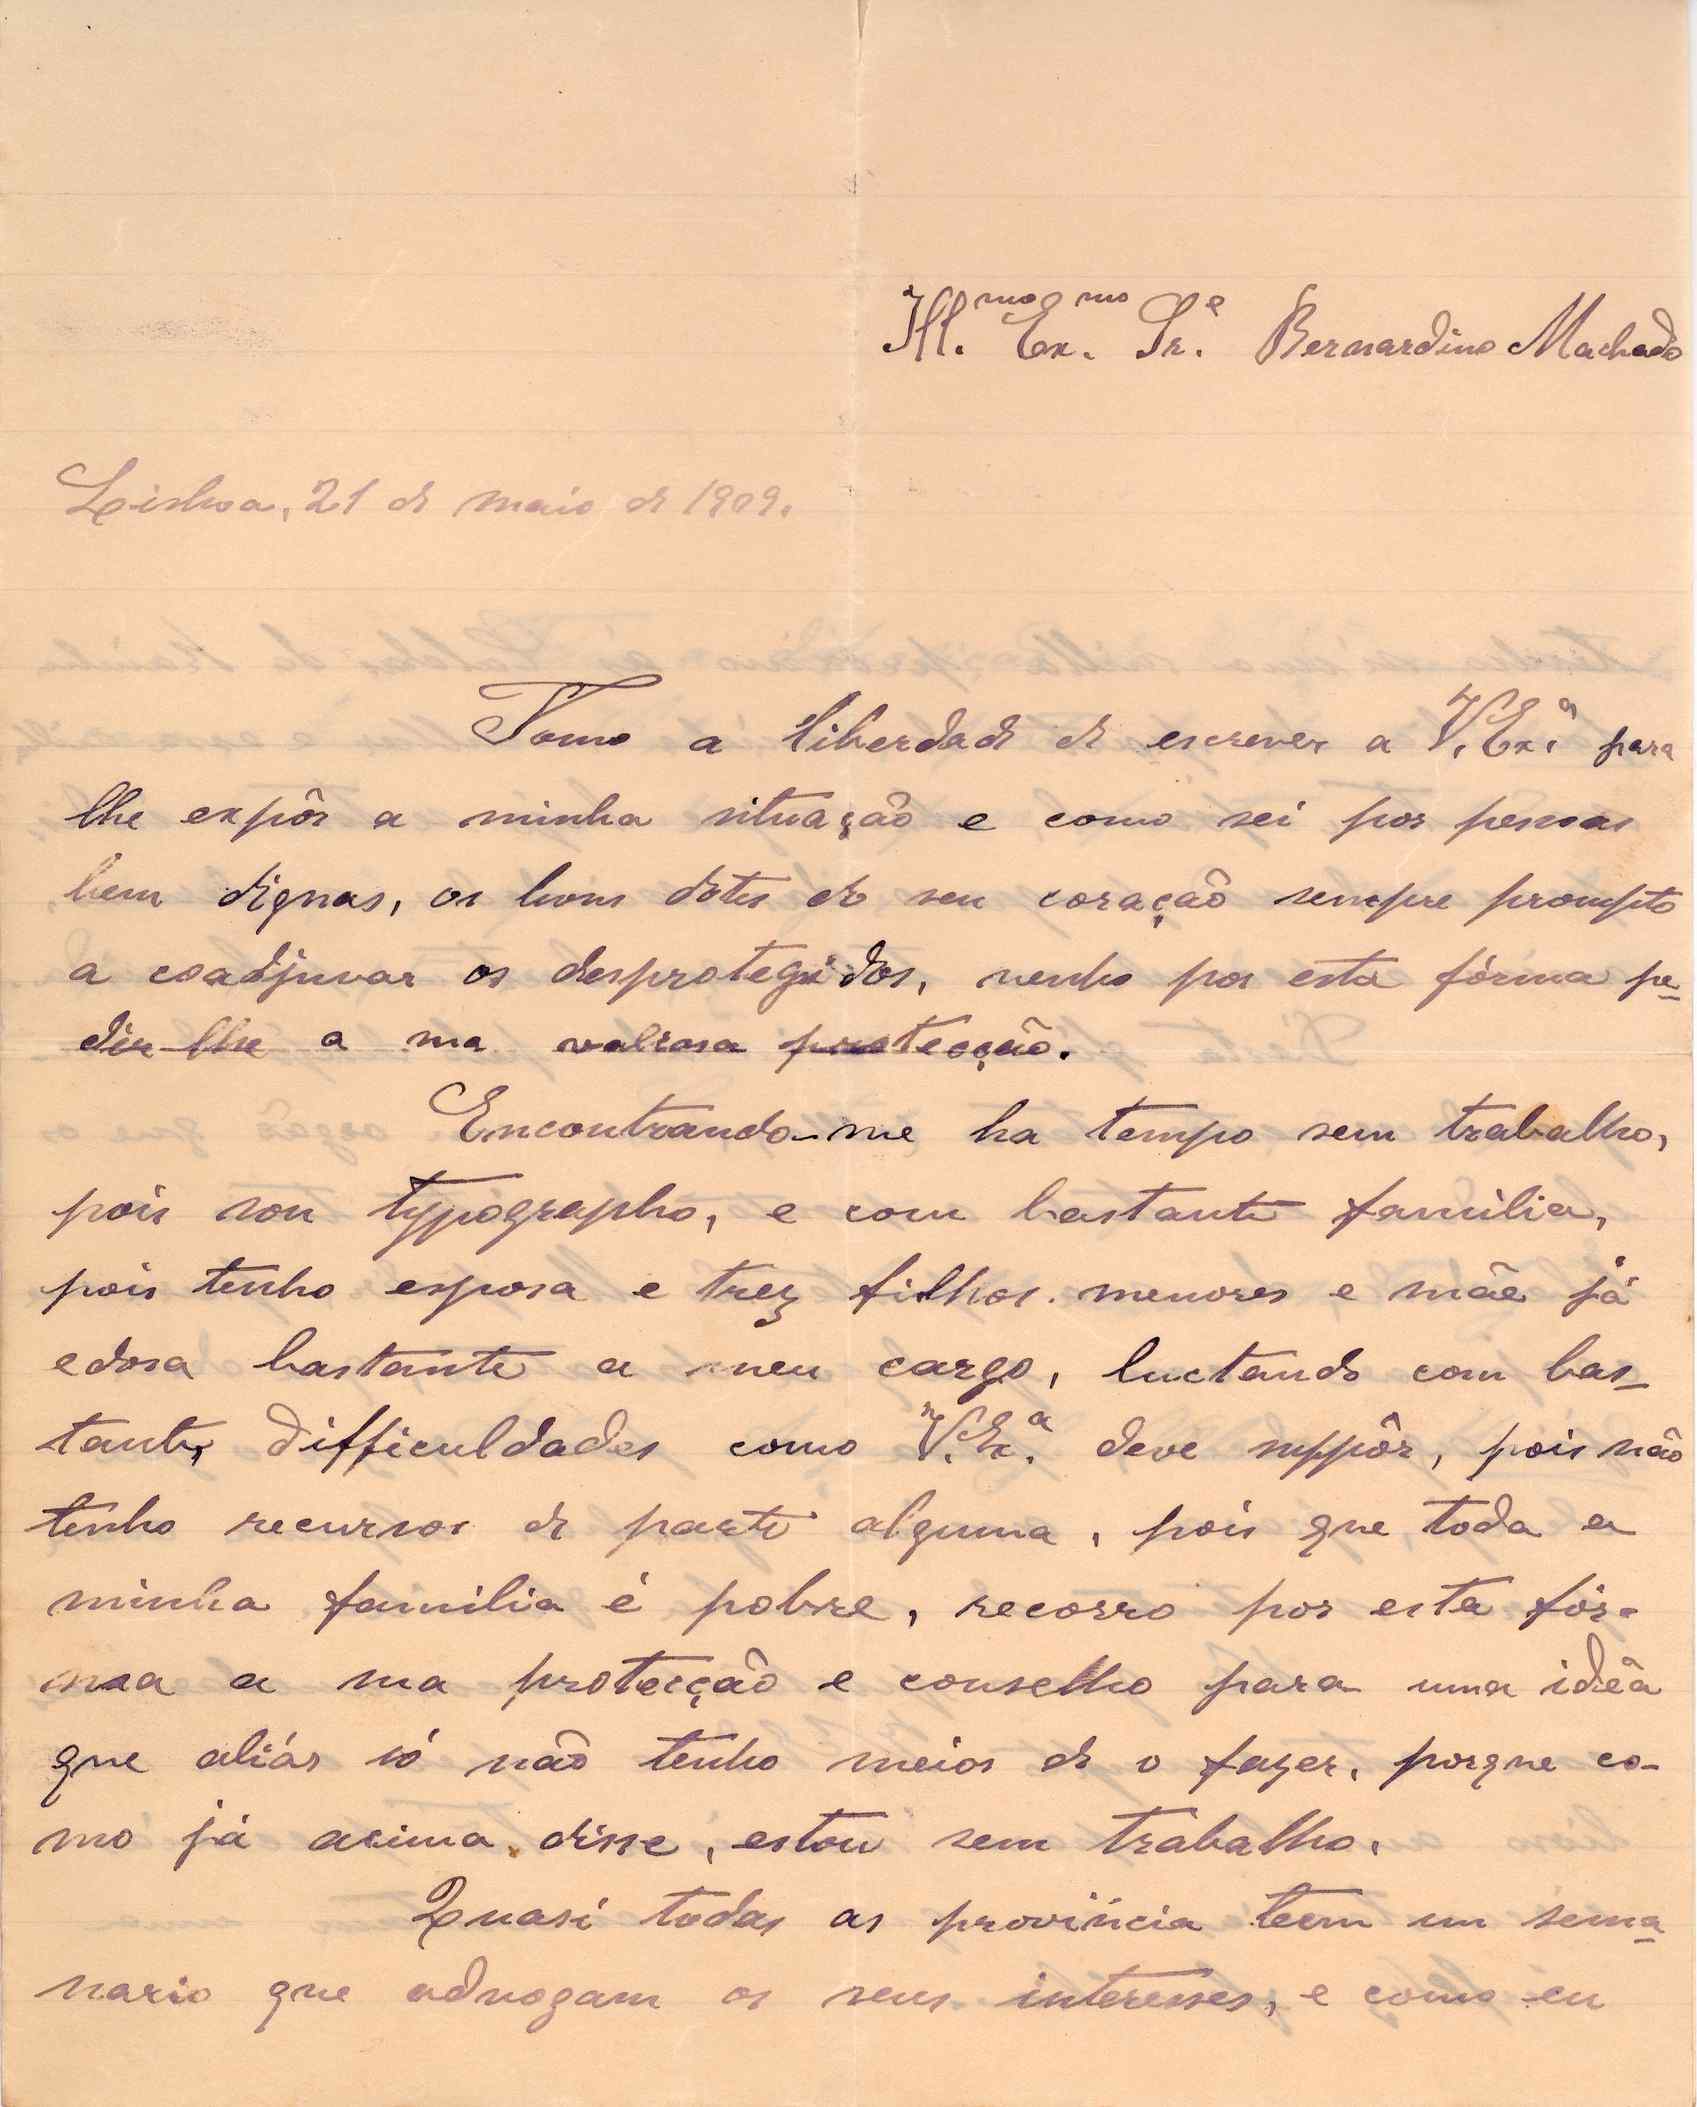 Ill.mo Ex.mo Sr.e Bernardino Machado
Lisboa, 21 de maio de 1909.
Tomo a liberdade de escrever a V. Ex.a para
lhe expôr a minha situação e como sei por pessoas
bem dignas, os bons dotes do seu coração sempre prompto
a coadjuvar os desprotegidos, venho por esta fórma pe-
dir-lhe a sua valiosa protecção.
Encontrando-me ha tempo sem trabalho,
pois sou typographo, e com bastante familia,
pois tenho esposa e trez filhos menores e mãe já
edosa bastante a meu cargo, luctando com bas-
tantes difficuldades como V. Ex.a deve suppôr, pois não
tenho recursos de parte alguma, pois que toda a
minha familia é pobre, recorro por esta fór-
ma a sua protecção e conselho para uma idêa
que aliás só não tenho meios de o fazer, porque co-
mo já acima disse, estou sem trabalho.
Quasi todas as provincia teem um sema-
nario que advogam os seus interesses, e como eu